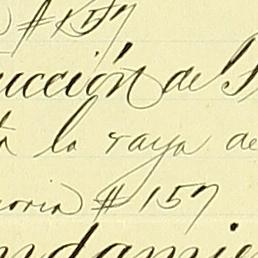 #157
ucción de
la raya de
oria #157
ndamie